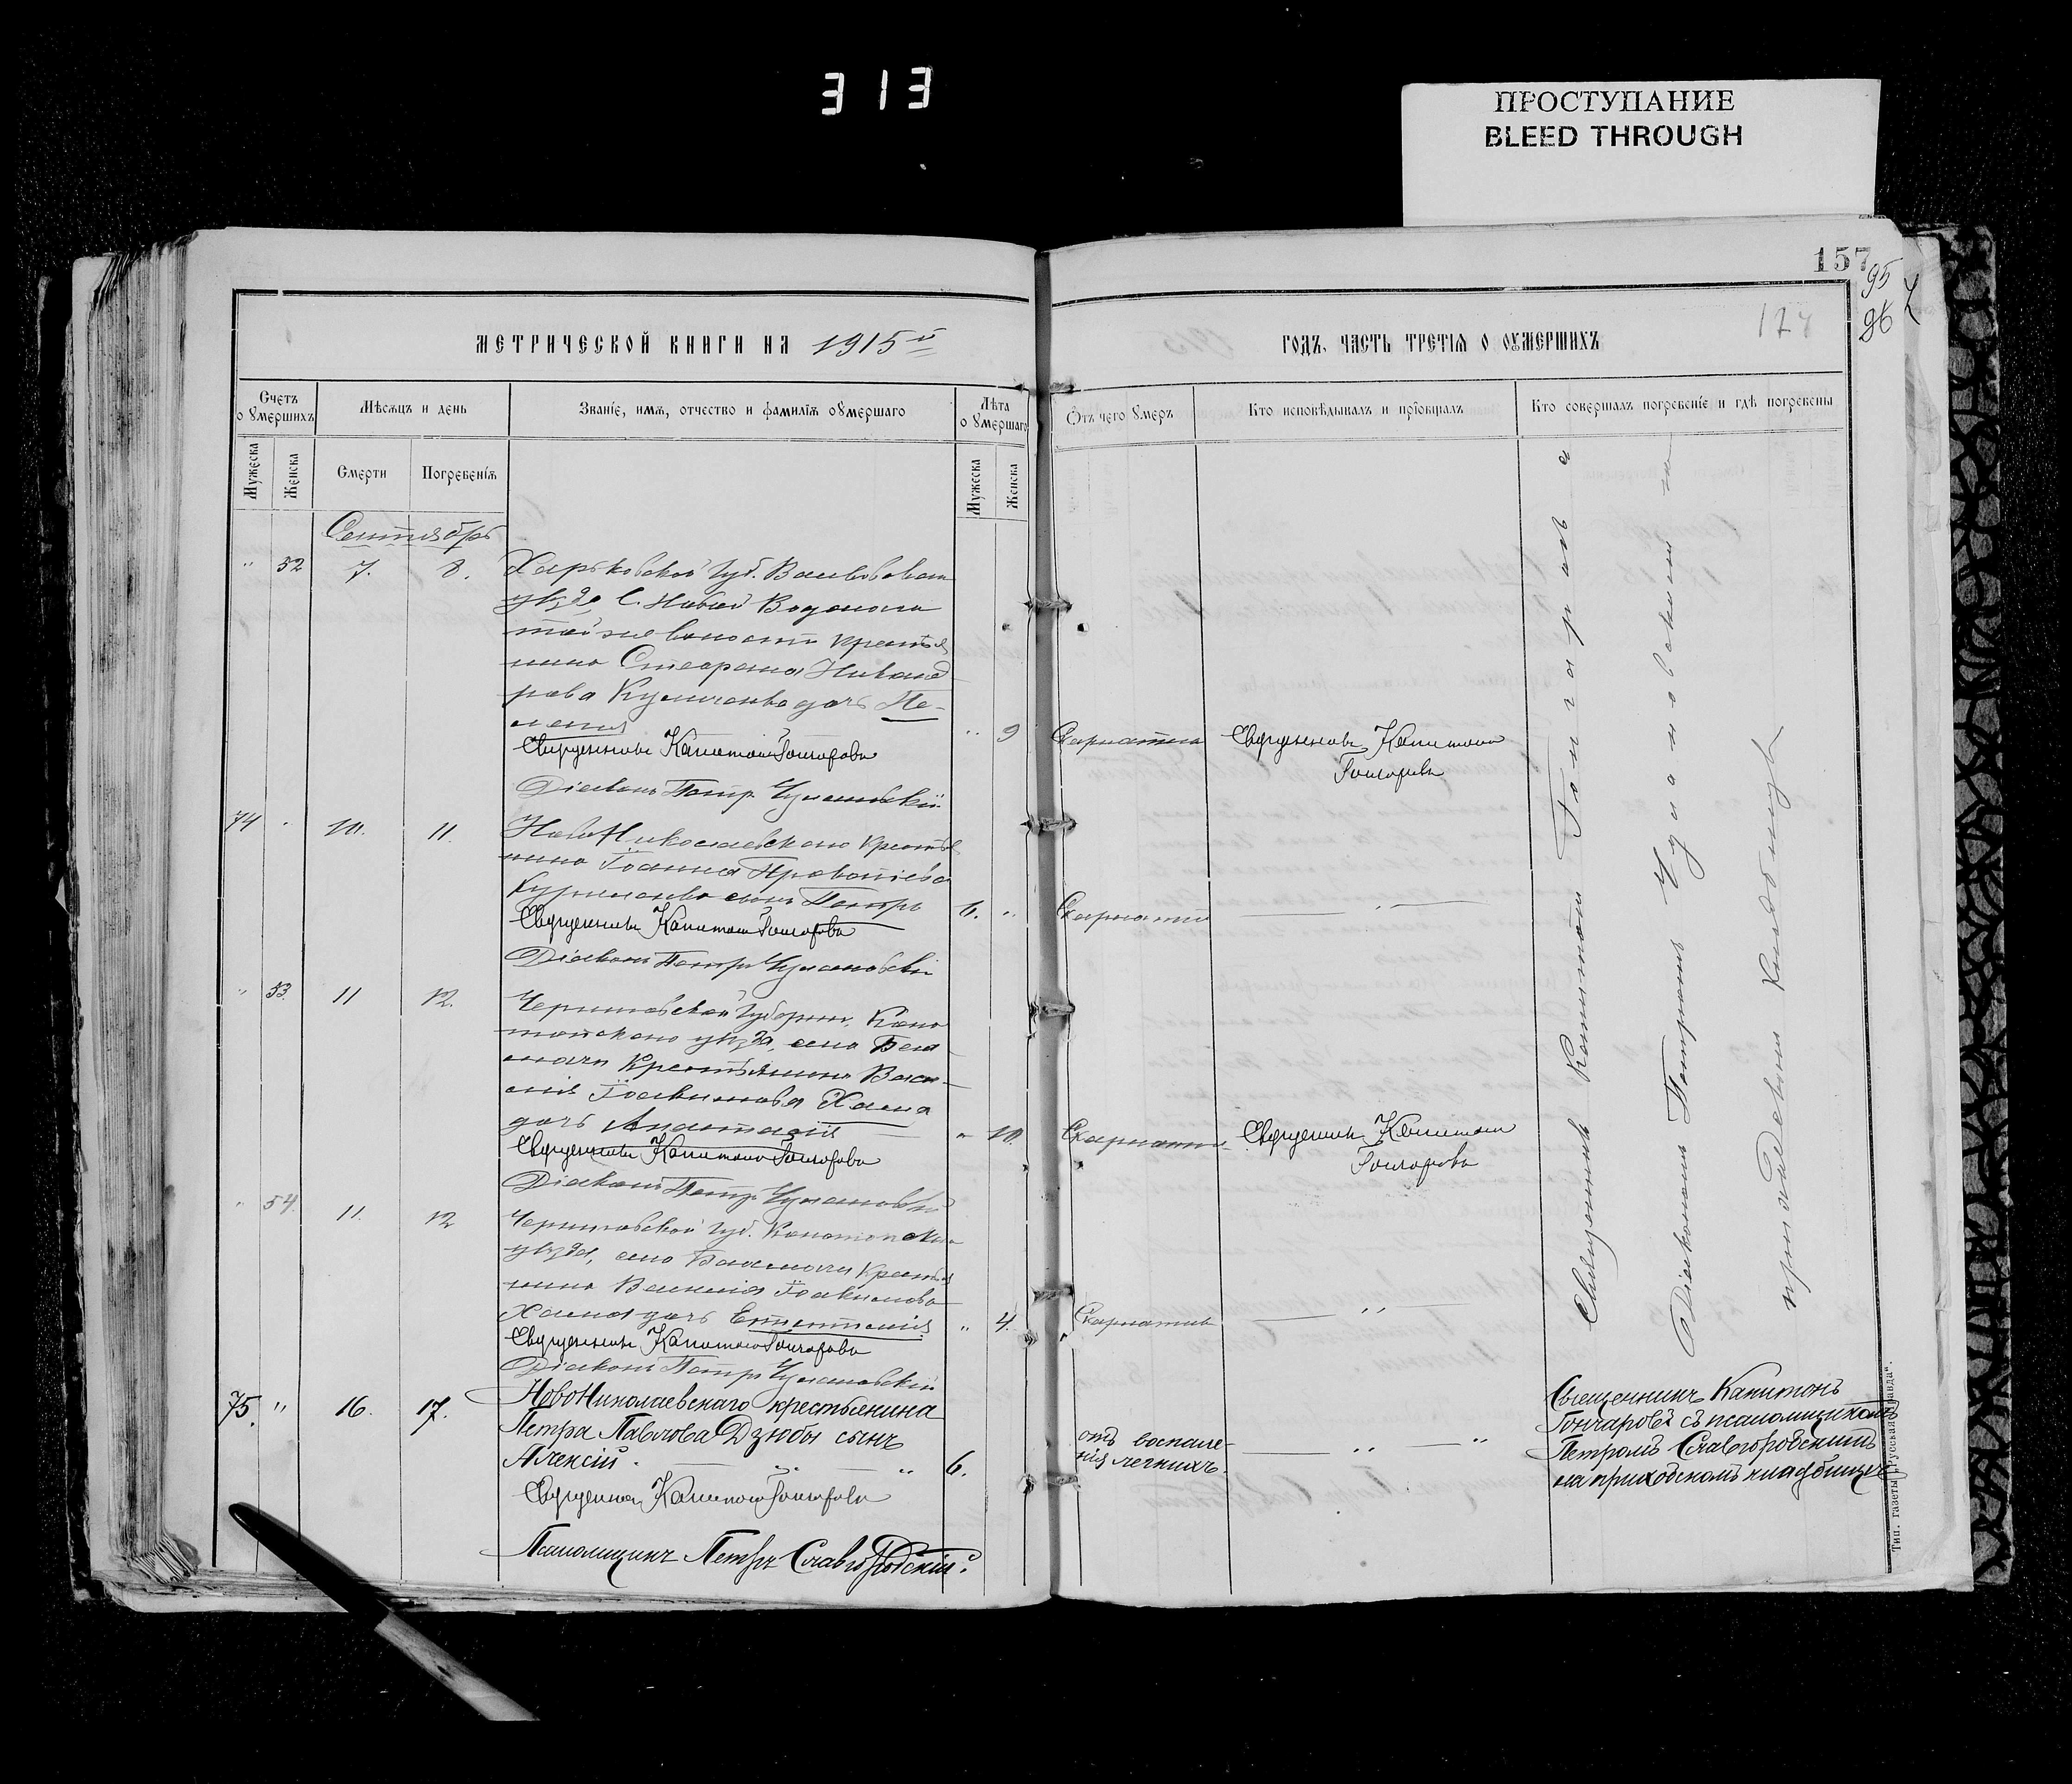 313
ПРОСТУПАНИЕ
BLEED THROUGH
157
95
96
174
МЕТРИЧЕСКОЙ КНИГИ НА 1915й
ГОДЪ, ЧАСТЬ ТРЕТІЯ О ОУМЕРШИХЪ
Счетъ о умершихъ
Мѣсяцъ и день
Званіе, имя, отчество и фамилія оумершаго
Лѣта оумершаго
Отъ чего умеръ
Кто исповѣдывалъ и пріобщалъ
Кто совершалъ погребеніе и гдѣ погребены
Мужеска
Женска
Смерти
Погребенія
Мужеска
Женска
Сентябрь
" 52 7. 8. Харьковской Губ. Валковскаго
уѣзда, С. Новой Водолаги
той же волости крестья
нина Стефана Никанд
рова дочь Пе-
лагія " 9 Скарлатина
Священникъ Капитонъ Гончаровъ
Священникъ Капитонъ
Гончаровъ
Діаконъ Петръ Чулановскій
74 " 10. 11. НовоНиколаевскаго крестья
нина Іоанна
сынъ Петръ 6. " Скарлатина — " —
Священникъ Капитонъ Гончаровъ
Діаконъ Петръ Чулановскій
" 53 11 12. Черниговской Губерніи, Коно
топскаго уѣзда, села
крестьянина Васи-
лія Іоакимова
дочь Анастасія " 10. Скарлатина
Священникъ Капитонъ Гончаровъ
Священникъ Капитонъ
Гончаровъ
Діаконъ Петръ Чулановскій
" 54. 11. 12 Черниговской Губ. Конотопскаго
уѣзда, села крестья
нина Василія Іоакимова
дочь " 4. Скарлатина — " —
Священникъ Капитонъ Гончаровъ
Діаконъ Петръ Чулановскій
75. " 16. 17. НовоНиколаевскаго крестьянина
Петра Павлова Дзюбы сынъ
Алексій. — " — " 6.
отъ воспале-
нія легкихъ. — " — "
Священникъ Капитонъ Гончаровъ
Псаломщикъ Петръ Славгородскій.
Священникъ Капитонъ Гончаровъ с
Діакономъ Петромъ Чулановскимъ на
приходскомъ кладбищѣ
Священникъ Капитонъ
Гончаровъ съ псаломщикомъ
Петромъ Славгородскимъ
на приходскомъ кладбищѣ
Тип. газеты „Русская Правда“.